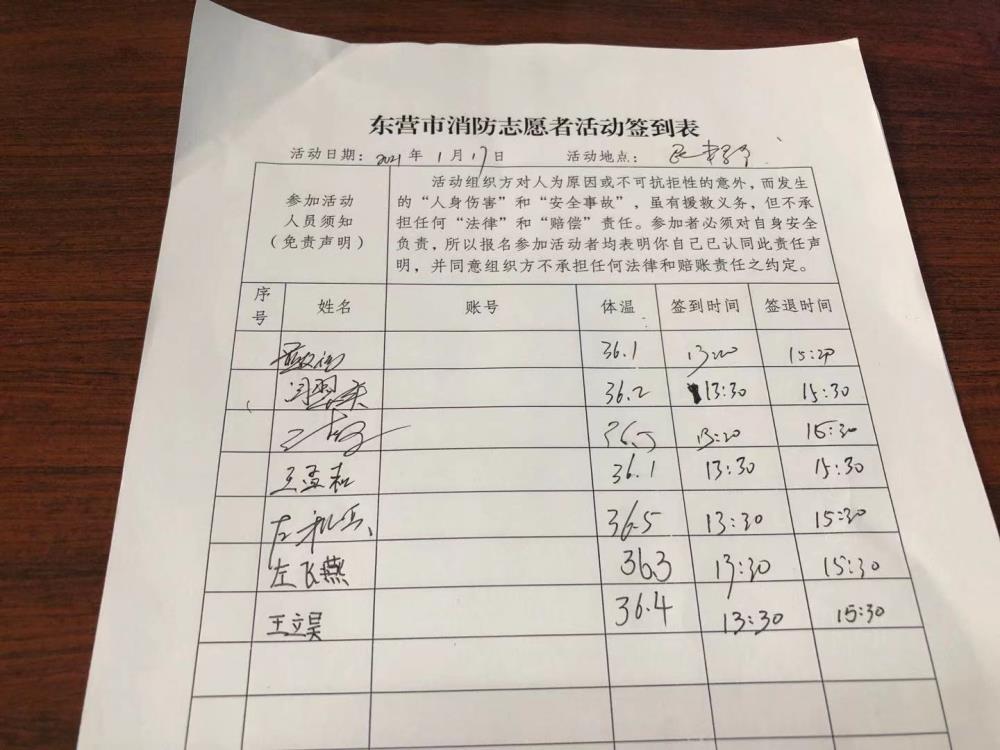 东营市消防志愿者活动签到表
活动日期：2021年1月17日 活动地点：
参加活动
人员须知
（免责声明）
活动组织方对人为原因或不可抗拒性的意外，而发生
的“人身伤害”和“安全事故”，虽有援救义务，但不承
担任何“法律”和“赔偿”责任。参加者必须对自身安全
负责，所以报名参加活动者均表明你自己已认同此责任声
明，并同意组织方不承担任何法律和赔账责任之约定。
序号 姓名 账号 体温 签到时间 签退时间
36.1 13:20 15:20
36.2 13:30 15:30
36.5 13:20 15:30
王孟和 36.1 13:30 15:30
左 36.5 13:30 15:30
左飞燕 36.3 13:30 15:30
王立昊 36.4 13:30 15:30